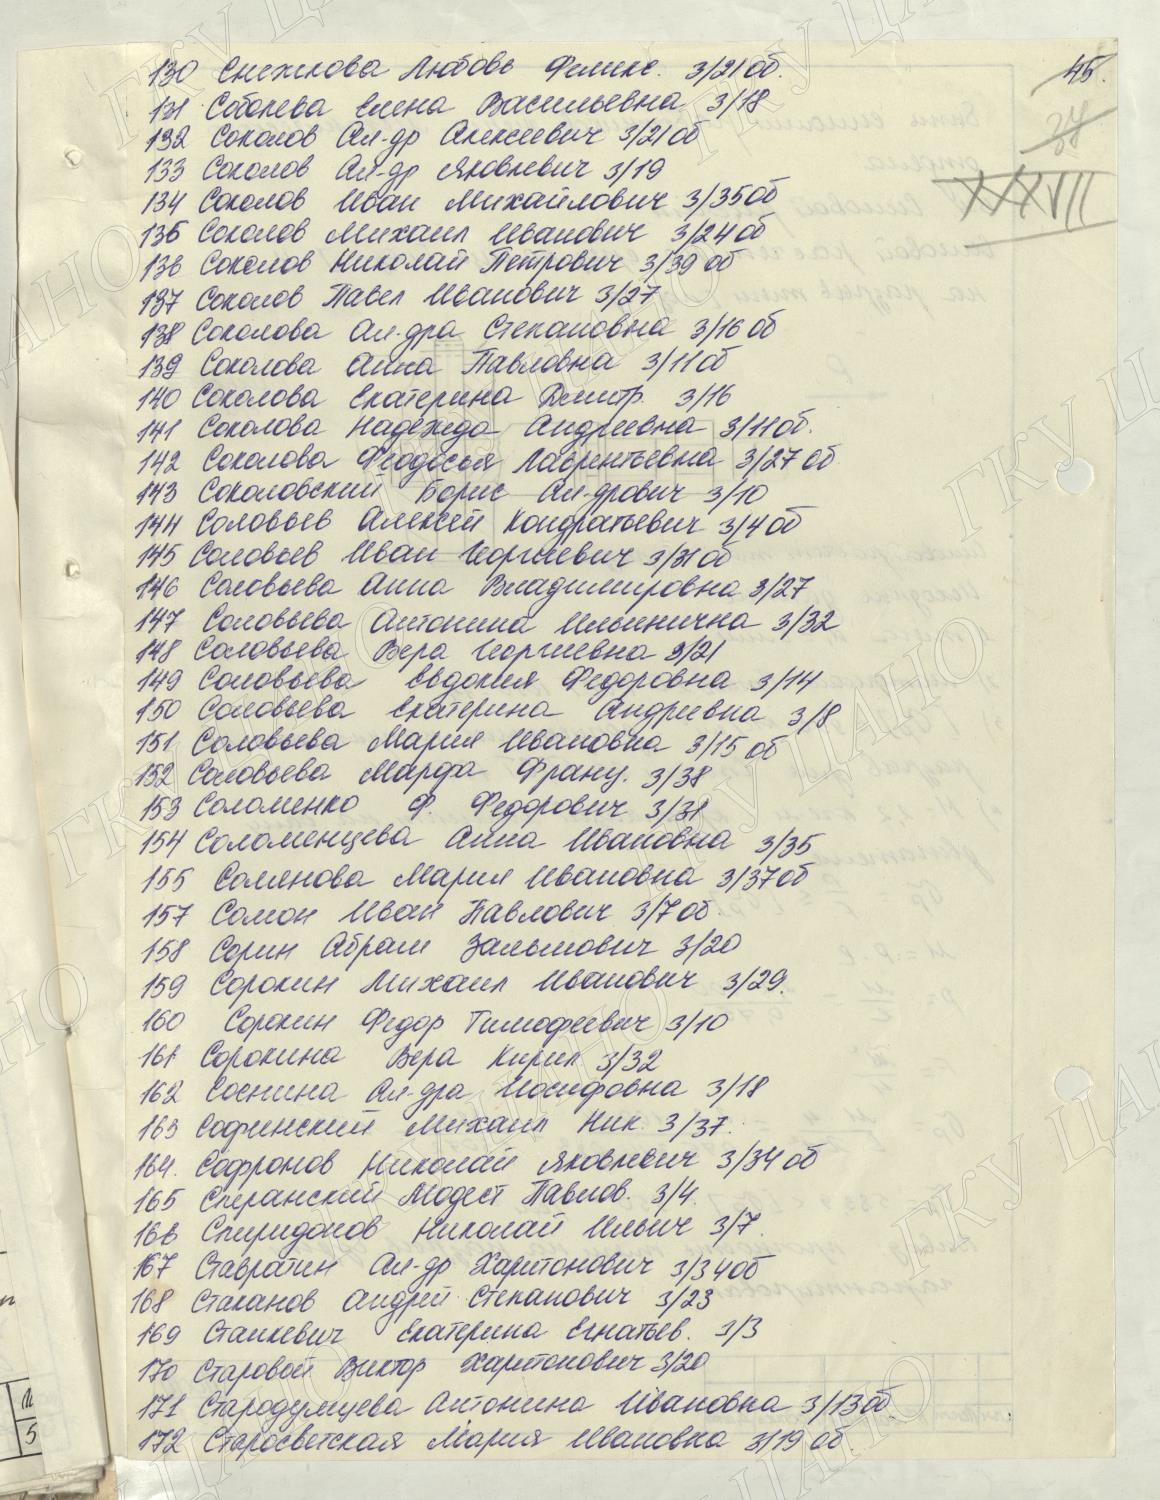 45.
37
XXXVII
130 Снежкова Любовь Феликс. 3/21об.
131 Соболева Елена Васильевна 3/18
132 Соколов Ал-др Алексеевич 3/21об
133 Соколов Ал-др Яковлевич 3/19
134 Соколов Иван Михайлович 3/35об
135 Соколов Михаил Иванович 3/24об
136 Соколов Николай Петрович 3/39об
137 Соколов Павел Иванович 3/27
138 Соколова Ал-дра Степановна 3/16об
139 Соколова Анна Павловна 3/11об
140 Соколова Екатерина Дмитр. 3/16
141 Соколова Надежда Андреевна 3/11об.
142 Соколова Феодосья Лаврентьевна 3/27об
143 Соколовский Борис Ал-дрович 3/10
144 Соловьев Алексей Кондратьевич 3/4об
145 Соловьев Иван Георгиевич 3/31об
146 Соловьева Анна Владимировна 3/27
147 Соловьева Антонина Ильинична 3/32
148 Соловьева Вера Георгиевна 3/21
149 Соловьева Евдокия Федоровна 3/14
150 Соловьева Екатерина Андреевна 3/8
151 Соловьева Мария Ивановна 3/15об
152 Соловьева Марфа Франц. 3/38
153 Соломенко Ф. Федорович 3/31
154 Соломенцева Анна Ивановна 3/35
155 Соленова Мария Ивановна 3/37об
157 Сомон Иван Павлович 3/7об.
158 Сорин Абрам Зальмович 3/20
159 Сорокин Михаил Иванович 3/29.
160 Сорокин Федор Тимофеевич 3/10
161 Сорокина Вера Кирил 3/32
162 Соснина Ал-дра Иосифовна 3/18
163 Софинский Михаил Ник. 3/37.
164. Софронов Николай Яковлевич 3/34об
165 Сперанский Модест Павлов. 3/4.
166 Спиридонов Николай Ильич 3/7.
167 Ставратин Ал-др Харитонович 3/34об
168 Стаканов Андрей Степанович 3/23
169 Станкевич Екатерина Егнатьев. 3/3
170 Старовой Виктор Харитонович 3/20
171 Стародумцева Антонина Ивановна 3/13об.
172 Старосветская Мария Ивановна 3/19об.
ГКУ ЦАНО